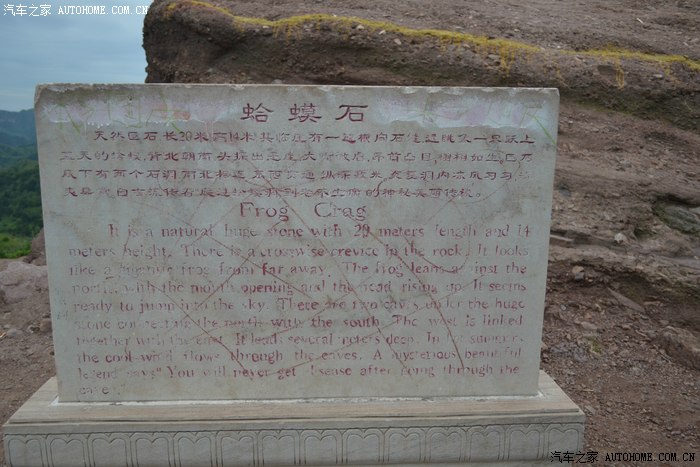 汽车之家 AUTOHOME.COM.CN
汽车之家 AUTOHOME.COM.CN
蛤蟆石
天然巨石长20米高14米其临崖有一道横向石缝远眺像一只跃上
天的蛤蟆,背北朝南头探出悬崖,大嘴微启,昂首凸目,栩栩如生。巨石
底下有两个石洞南北相连,东西贯通,纵深数米,炎夏洞内凉风习习。
Frog Crag
It is a natural huge stone with 20 meters length and 14
meters height. There is a crosswise crevice in the rock. It looks
like a gigantic frog from far away. The frog leans against the
north, with the mouth opening and the head rising up. It seems
ready to jump into the sky. There are two caves under the huge
stone connecting the north with the south. The west is linked
together with the east. It leads several meters deep. In hot summers
the cool wind flows through the caves. A mysterious beautiful
legend says" You will never get disease after going through the
cave".
汽车之家 AUTOHOME.COM.CN
汽车之家 AUTOHOME.COM.CN